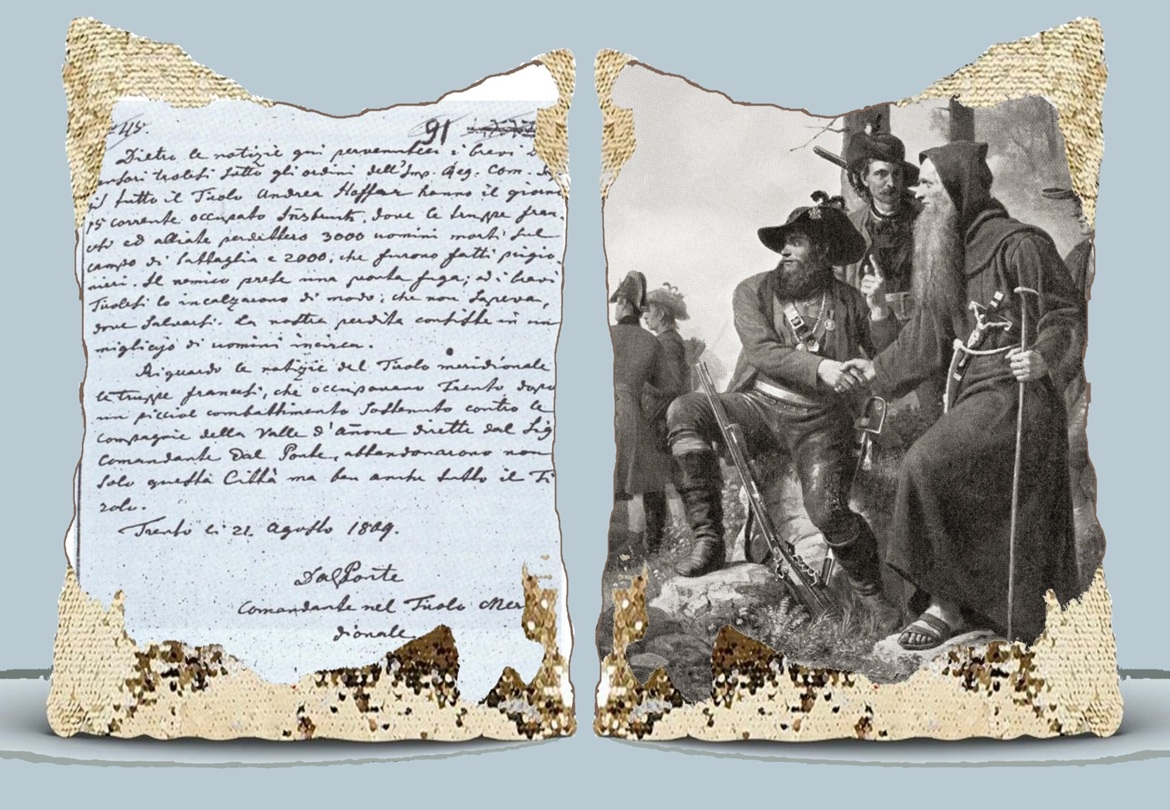 45. 91
Dietro le notizie qui pervenuteci i bravi D
ensori trolesi sotto gli ordini dell'Imp. Reg. Com. D
il tutto il Tirolo Andrea Hoffer hanno il giorn
15 corrente occupato Insbruk, dove le truppe fran
cesi ed alliate perdettero 3000 uomini morti sul
campo di battaglia e 2000, che furono fatti prigio
nieri. Il nemico prese una fuga; ed i bravi
Tirolesi lo incalzarono di modo, che non sapeva,
dove salvarsi. La nostra perdita consiste in un
migliajo di uomini incirca.
Riguardo le notizie del Tirolo meridionale
le truppe francesi, che occupavano Trento dopo
un picciol combattimento sostenuto contro le
compagnie della Valle d'Añone dirette dal Sig
Comandante Dal Ponte, abbandonarono non
solo questa Città ma ben anche tutto il Ti
rolo.
Trento li 21 Agosto 1809.
Dal Ponte
Comandante nel Tirolo Mer
dionale